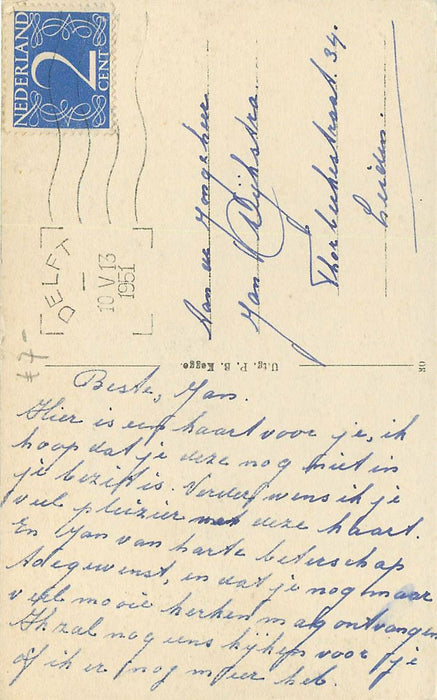 NEDERLAND
2
CENT
DELFT
10 V 13
1951
Aan de Jongeheer
Jan Dijkstra.
Thorbeckestraat 34.
Leiden.
Uitg. P. B. Kegge
£7-
Beste, Jan.
Hier is een kaart voor je, ik
hoop dat je deze nog niet in
je bezit is. Verder wens ik je
veel plezier met deze kaart.
En Jan van harte beterschap
toegewenst, en dat je nog maar
veel mooie kerken mag ontvangen
Ik zal nog eens kijken voor je
of ik er nog meer heb.